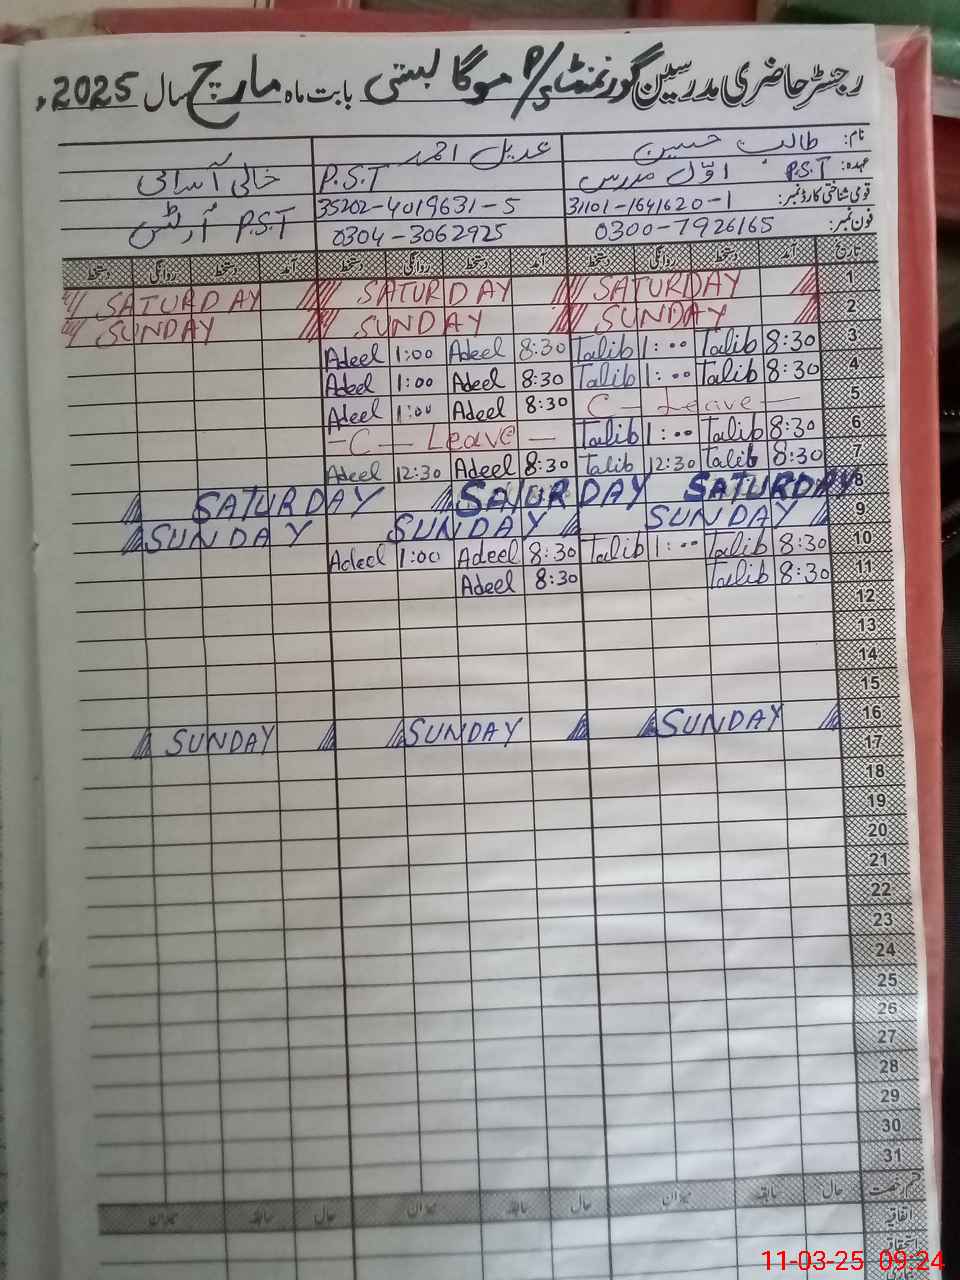 رجسٹر حاضری مدرسین گورنمنٹ P/S موگا بستی بابت ماہ مارچ سال 2025ء
نام: طالب حسین عدیل احمد
عہدہ: P.S.T اوّل مدرس P.S.T خالی آسامی
قومی شناختی کارڈ نمبر: 31101-1641620-1 35202-4019631-5 P.S.T آرٹس
فون نمبر: 0300-7926165 0304-3062925
تاریخ آمد دستخط روانگی دستخط آمد دستخط روانگی دستخط آمد دستخط روانگی دستخط
1 SATURDAY SATURDAY SATURDAY
2 SUNDAY SUNDAY SUNDAY
3 8:30 Talib 1:00 Talib 8:30 Adeel 1:00 Adeel
4 8:30 Talib 1:00 Talib 8:30 Adeel 1:00 Adeel
5 C - Leave - 8:30 Adeel 1:00 Adeel
6 8:30 Talib 1:00 Talib -C- Leave -
7 8:30 Talib 12:30 Talib 8:30 Adeel 12:30 Adeel
8 SATURDAY SATURDAY SATURDAY
9 SUNDAY SUNDAY SUNDAY
10 8:30 Talib 1:00 Talib 8:30 Adeel 1:00 Adeel
11 8:30 Talib 8:30 Adeel
12
13
14
15
16 SUNDAY SUNDAY SUNDAY
17
18
19
20
21
22
23
24
25
26
27
28
29
30
31
قسم رخصت حال سابقہ میزان حال سابقہ میزان حال سابقہ میزان
اتفاقیہ
11-03-25 09:24